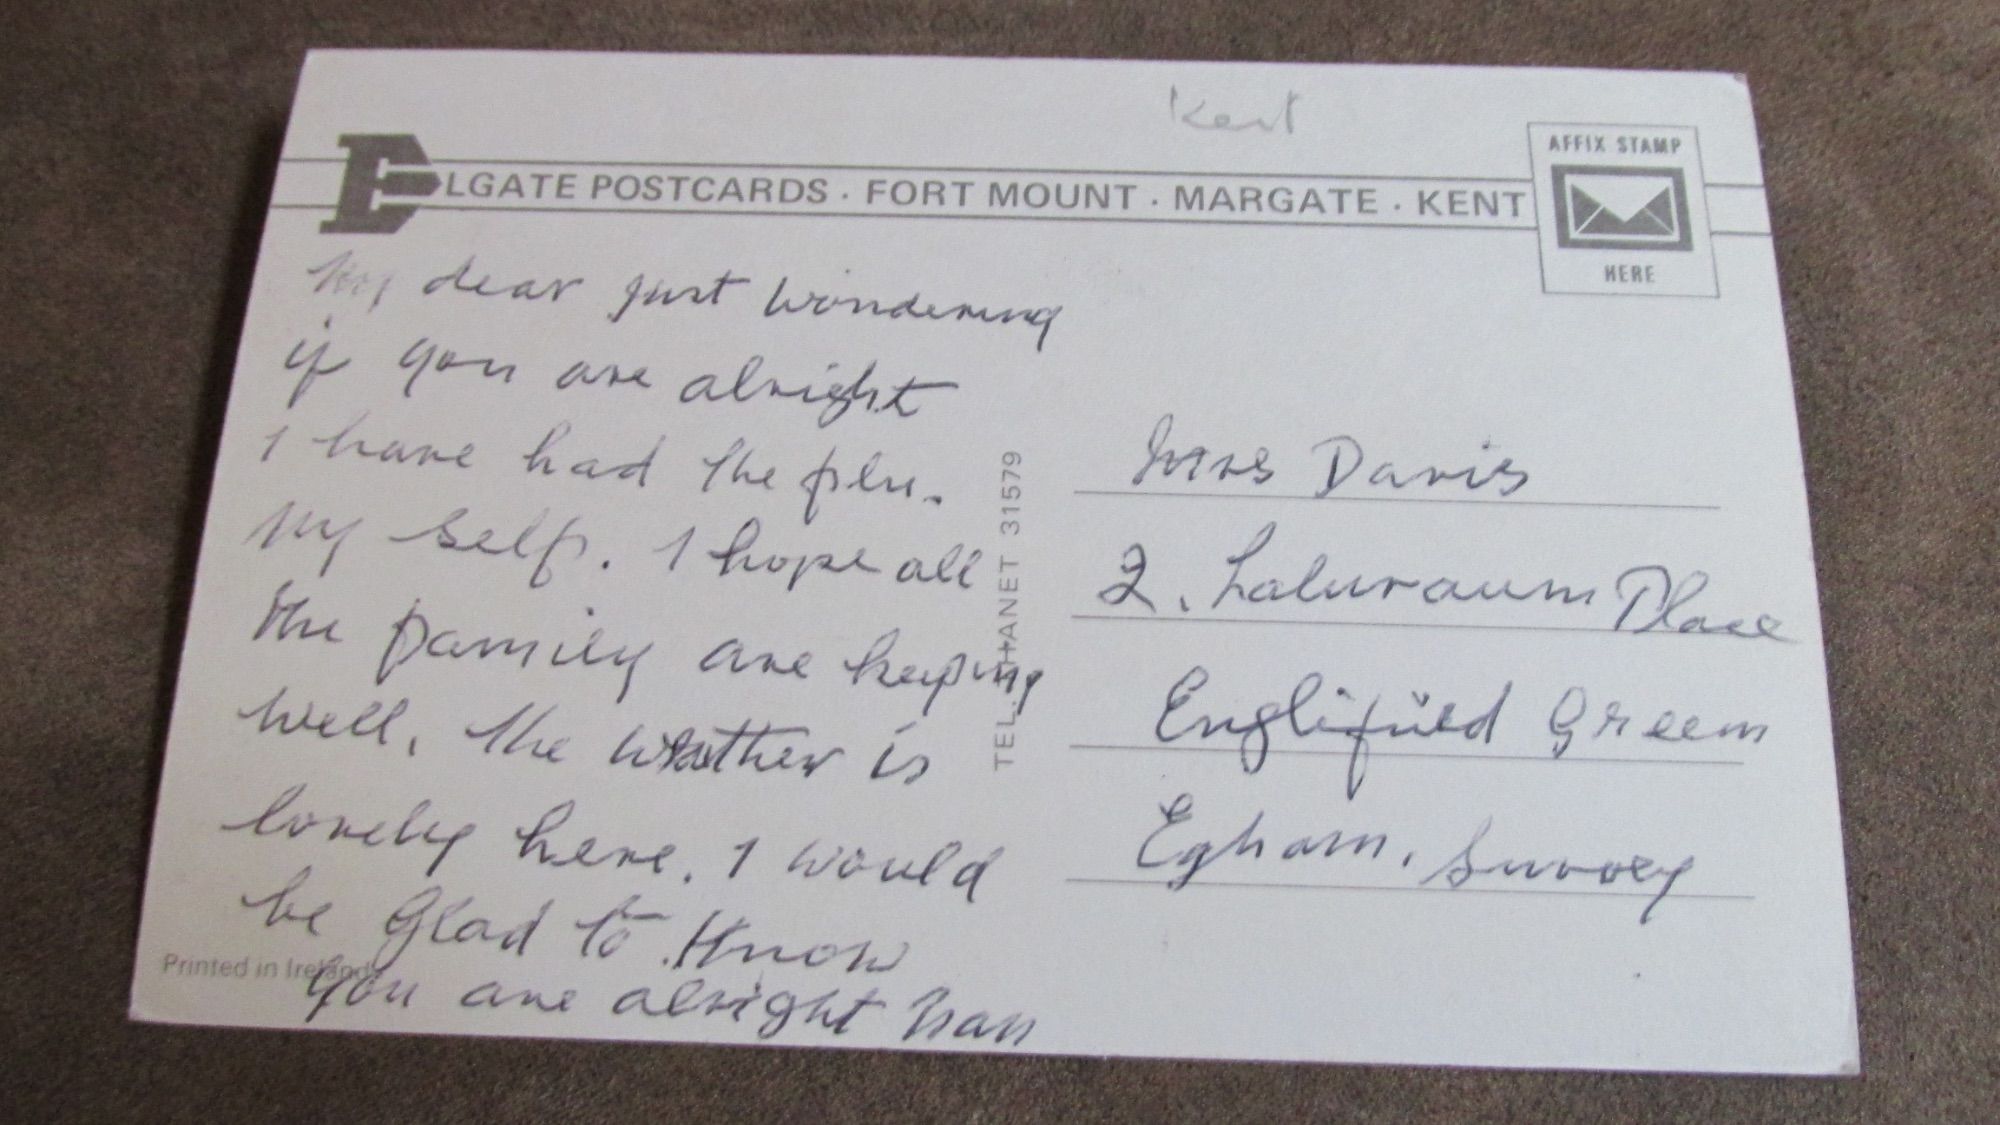 Kent
ELGATE POSTCARDS · FORT MOUNT · MARGATE · KENT
AFFIX STAMP
HERE
My dear just wondering
if you are alright
I have had the flu.
My self. I hope all
the family are keeping
well. the weather is
lovely here. I would
be Glad to Know
you are alright Nan
TEL. THANET 31579
Mrs Davis
2, Place
Englifield Green
Egham, Surrey
Printed in Ireland